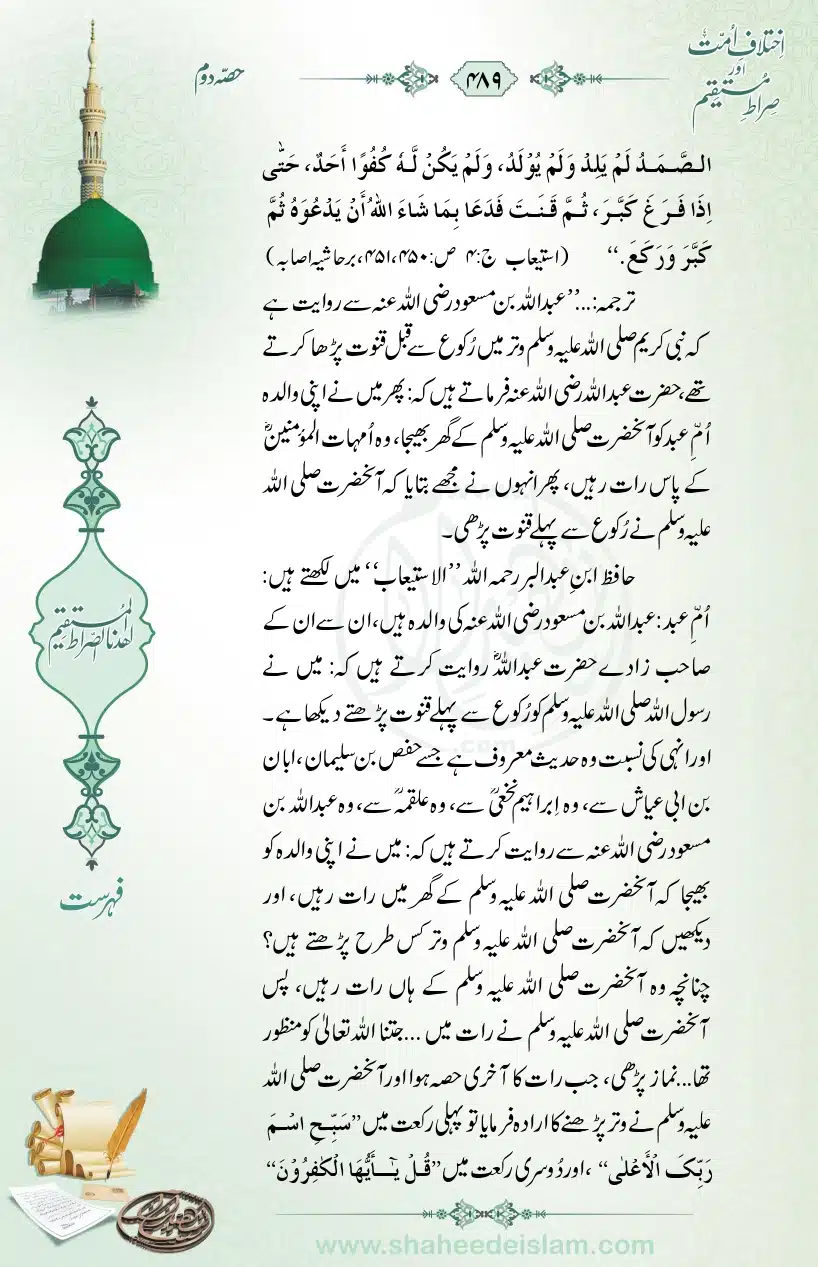 اِختلافِ اُمّت
اور
صِراطِ مُستقیم
۴۸۹
حصّہ دوم
الصَّمَدُ لَمْ یَلِدْ وَلَمْ یُوْلَدُ، وَلَمْ یَکُنْ لَّهٗ کُفُوًا أَحَدٌ، حَتّٰی
اِذَا فَرَغَ کَبَّرَ، ثُمَّ قَنَتَ فَدَعَا بِمَا شَاءَ اللهُ أَنْ یَدْعُوَهُ ثُمَّ
کَبَّرَ وَرَکَعَ.‘‘ (استیعاب ج:۴ ص:۴۵۰، ۴۵۱، برحاشیہ اصابہ)
ترجمہ:...’’عبداللہ بن مسعود رضی اللہ عنہ سے روایت ہے
کہ نبی کریم صلی اللہ علیہ وسلم وتر میں رُکوع سے قبل قنوت پڑھا کرتے
تھے، حضرت عبداللہ رضی اللہ عنہ فرماتے ہیں کہ: پھر میں نے اپنی والدہ
اُمِّ عبد کو آنحضرت صلی اللہ علیہ وسلم کے گھر بھیجا، وہ اُمہات المؤمنینؓ
کے پاس رات رہیں، پھر انہوں نے مجھے بتایا کہ آنحضرت صلی اللہ
علیہ وسلم نے رُکوع سے پہلے قنوت پڑھی۔
حافظ ابنِ عبدالبر رحمہ اللہ ’’الاستیعاب‘‘ میں لکھتے ہیں:
اُمِّ عبد: عبداللہ بن مسعود رضی اللہ عنہ کی والدہ ہیں، ان سے ان کے
صاحب زادے حضرت عبداللہؓ روایت کرتے ہیں کہ: میں نے
رسول اللہ صلی اللہ علیہ وسلم کو رُکوع سے پہلے قنوت پڑھتے دیکھا ہے۔
اور انہی کی نسبت وہ حدیث معروف ہے جسے حفص بن سلیمان، ابان
بن ابی عیاش سے، وہ اِبراہیم نخعیؒ سے، وہ علقمہؒ سے، وہ عبداللہ بن
مسعود رضی اللہ عنہ سے روایت کرتے ہیں کہ: میں نے اپنی والدہ کو
بھیجا کہ آنحضرت صلی اللہ علیہ وسلم کے گھر میں رات رہیں، اور
دیکھیں کہ آنحضرت صلی اللہ علیہ وسلم وتر کس طرح پڑھتے ہیں؟
چنانچہ وہ آنحضرت صلی اللہ علیہ وسلم کے ہاں رات رہیں، پس
آنحضرت صلی اللہ علیہ وسلم نے رات میں ...جتنا اللہ تعالیٰ کو منظور
تھا... نماز پڑھی، جب رات کا آخری حصہ ہوا اور آنحضرت صلی اللہ
علیہ وسلم نے وتر پڑھنے کا ارادہ فرمایا تو پہلی رکعت میں ’’سَبِّحِ اسْمَ
رَبِّکَ الْأَعْلٰی‘‘ ، اور دُوسری رکعت میں ’’قُلْ یٰٓـأَیُّهَا الْکٰفِرُوْنَ‘‘
اهدنا الصّراط المُستقیم
فہرست
www.shaheedeislam.com